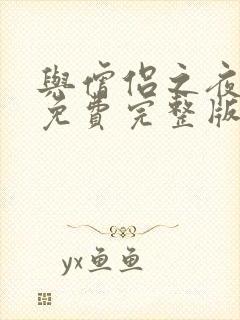 與僧侣之夜
免費完整版
yx鱼鱼